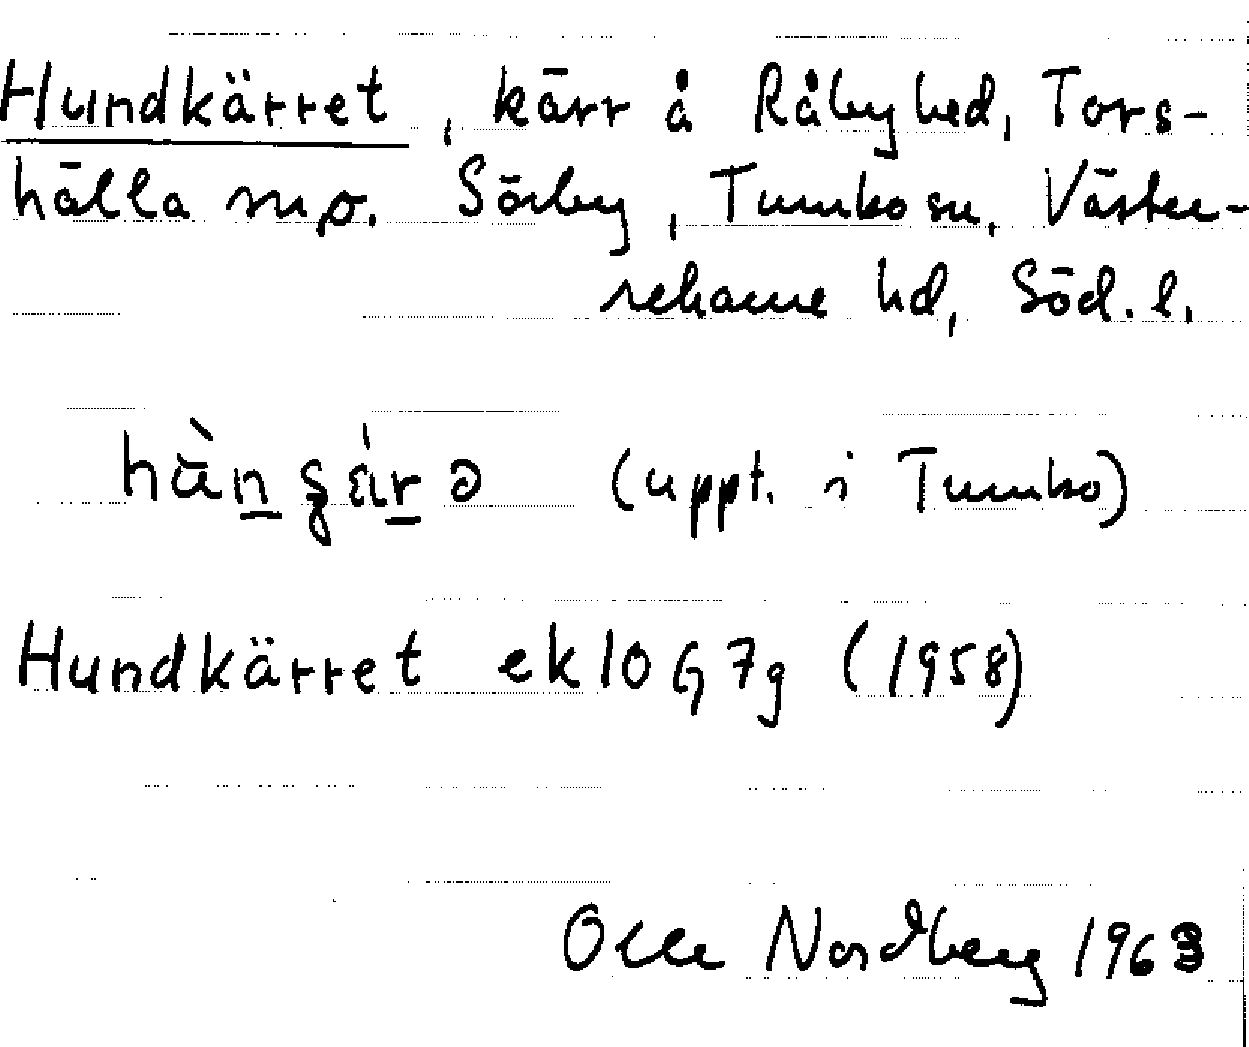 Hundkärret, kärr å Råby hed, Tors-
hälla snp. Sörby, Tumbo sn. Väster-
rekarne hd, Söd. l.
(uppt. i Tumbo)
Hundkärret ek 10 G 7g (1958)
Olle Nordberg 1963